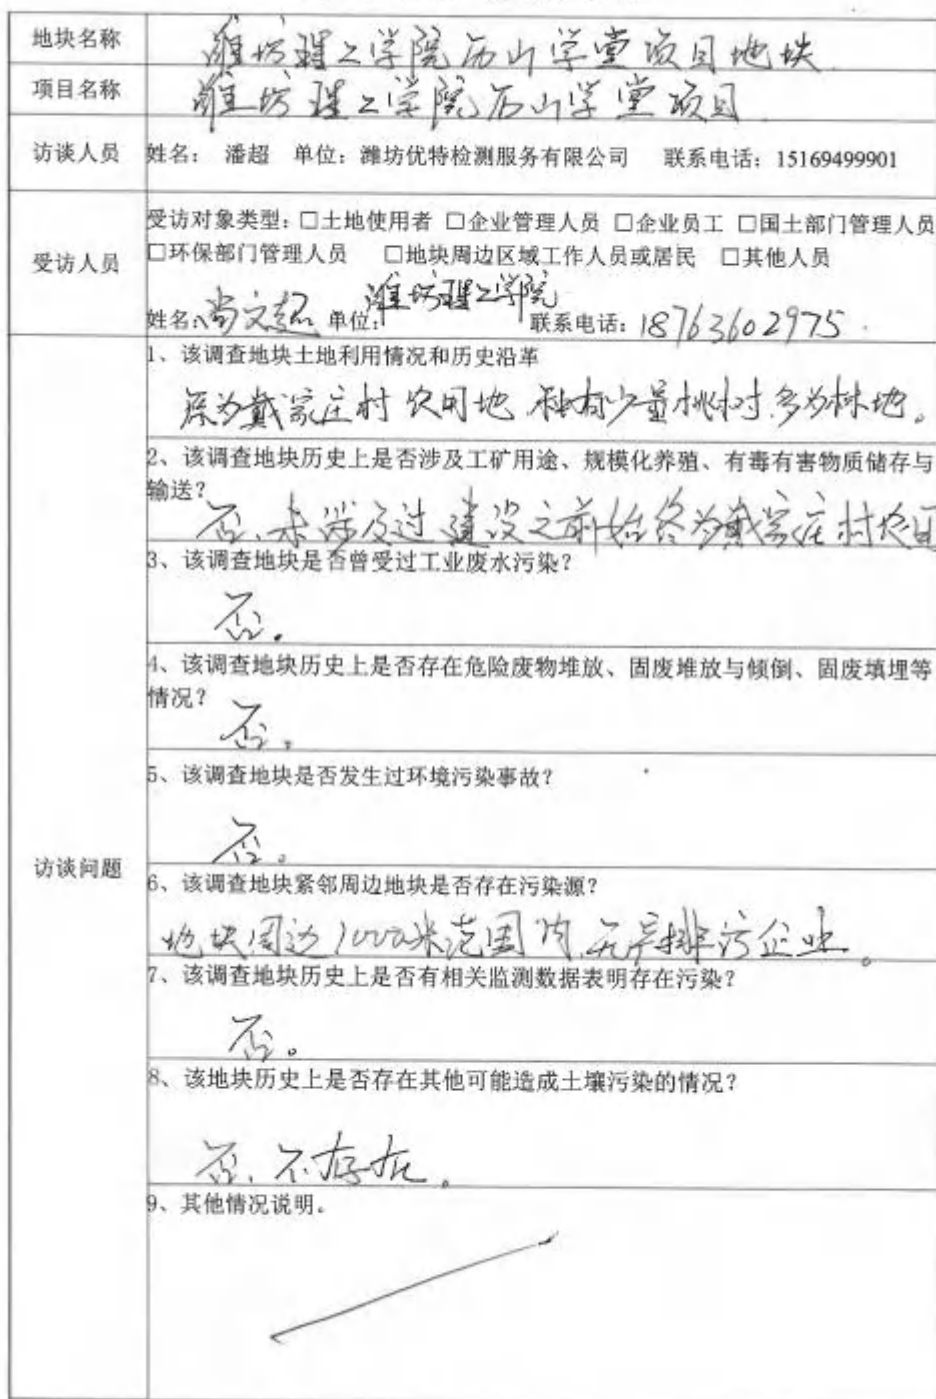 地块名称 潍坊理工学院历山学堂项目地块
项目名称 潍坊理工学院历山学堂项目
访谈人员 姓名: 潘超 单位: 潍坊优特检测服务有限公司 联系电话: 15169499901
受访人员
受访对象类型: □土地使用者 □企业管理人员 □企业员工 □国土部门管理人员
□环保部门管理人员 □地块周边区域工作人员或居民 □其他人员
姓名: 尚文超 单位: 潍坊理工学院 联系电话: 18763602975.
访谈问题
1、该调查地块土地利用情况和历史沿革
原为戴家庄村农用地 种有少量桃树,多为林地。
2、该调查地块历史上是否涉及工矿用途、规模化养殖、有毒有害物质储存与
输送?
否,未涉及过 建设之前始终为戴家庄村农用
3、该调查地块是否曾受过工业废水污染?
否。
4、该调查地块历史上是否存在危险废物堆放、固废堆放与倾倒、固废填埋等
情况?
否。
5、该调查地块是否发生过环境污染事故?
否。
6、该调查地块紧邻周边地块是否存在污染源?
地块周边1000米范围内,无产排污企业。
7、该调查地块历史上是否有相关监测数据表明存在污染?
否。
8、该地块历史上是否存在其他可能造成土壤污染的情况?
否,不存在。
9、其他情况说明。